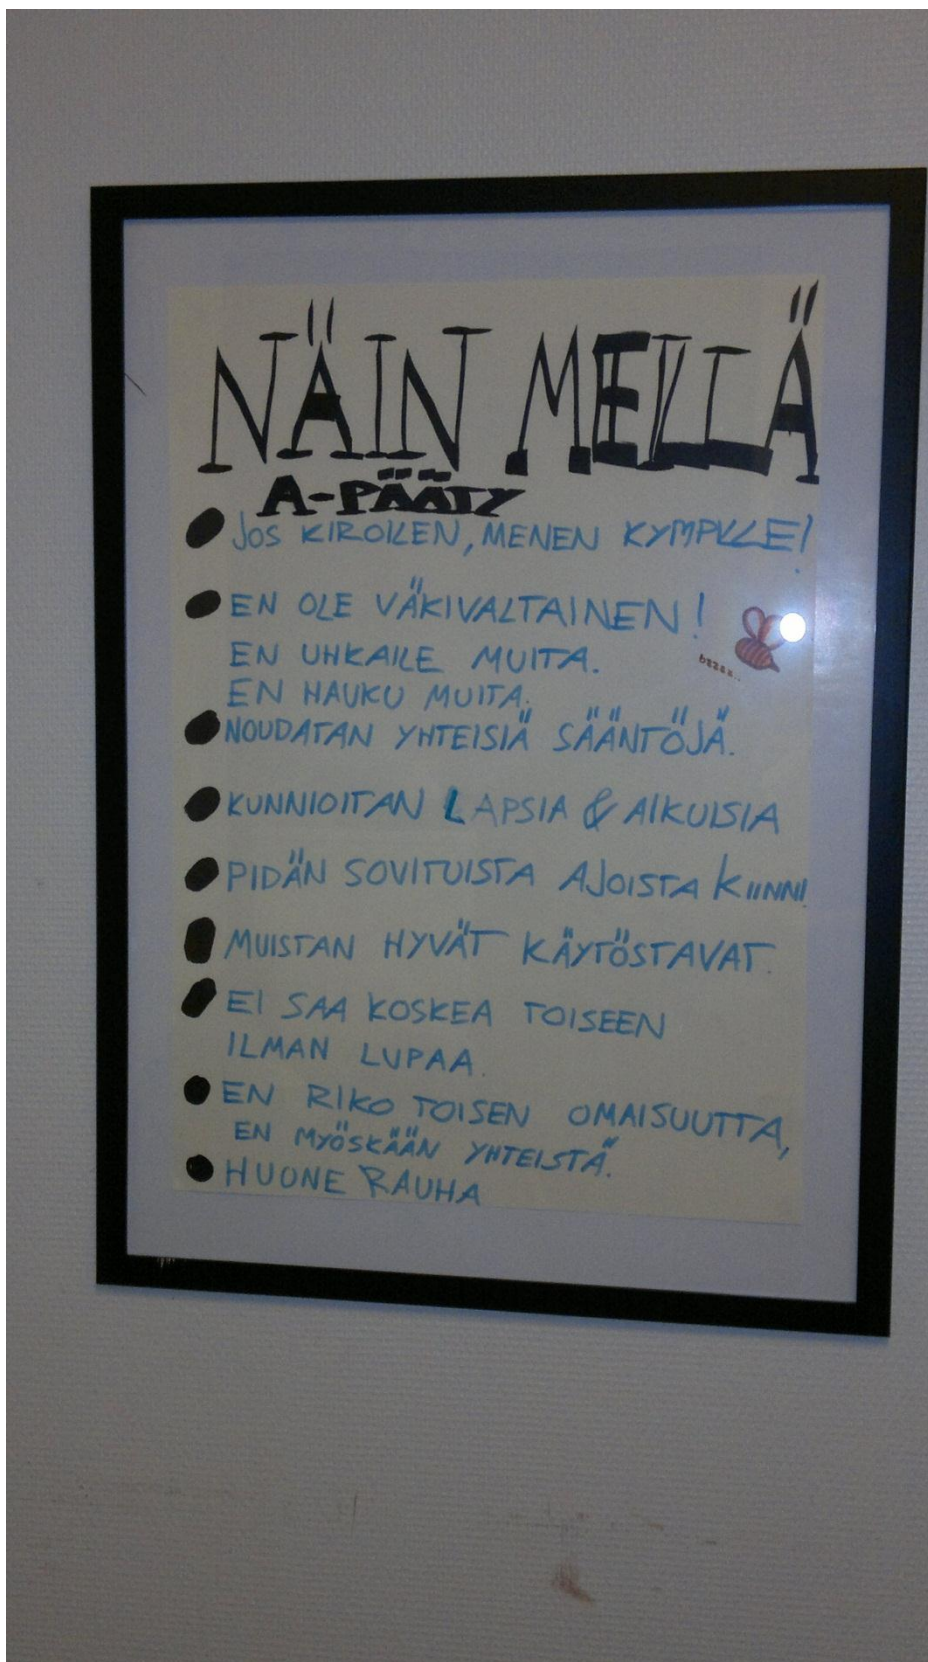 NÄIN MEILLÄ
A-PÄÄTY
JOS KIROILEN, MENEN KYMPILLE!
EN OLE VÄKIVALTAINEN!
EN UHKAILE MUITA.
bzzzz..
EN HAUKU MUITA.
NOUDATAN YHTEISIÄ SÄÄNTÖJÄ.
KUNNIOITAN LAPSIA & AIKUISIA
PIDÄN SOVITUISTA AJOISTA KIINNI.
MUISTAN HYVÄT KÄYTÖSTAVAT.
EI SAA KOSKEA TOISEEN
ILMAN LUPAA.
EN RIKO TOISEN OMAISUUTTA,
EN MYÖSKÄÄN YHTEISTÄ.
HUONE RAUHA